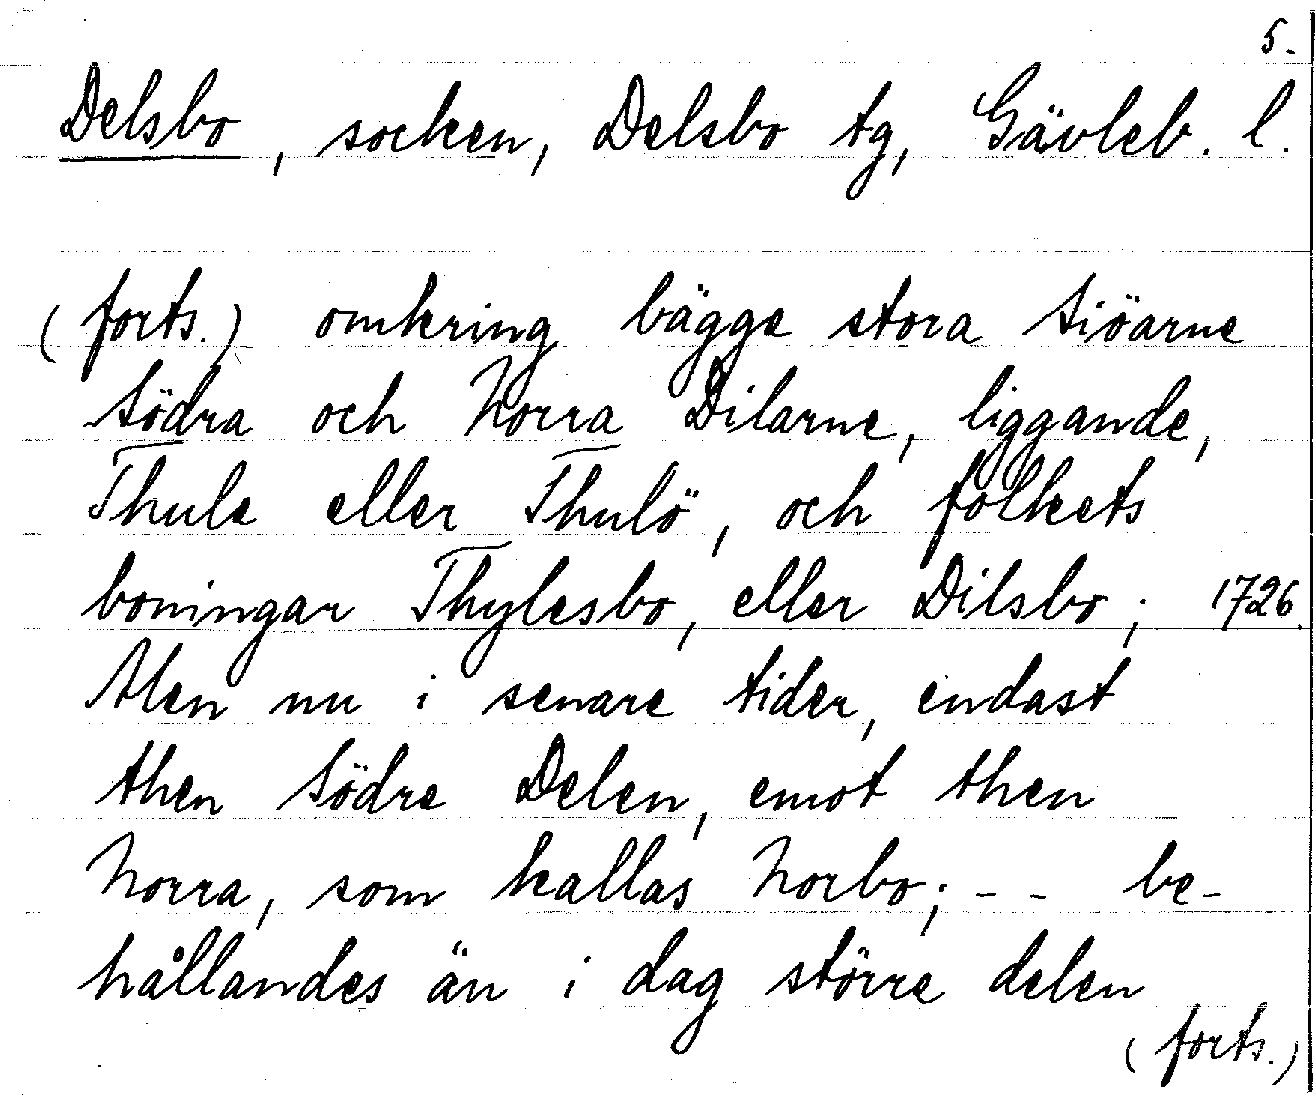 5.
Delsbo, socken, Delsbo tg, Gävleb. l.
(forts.) omkring bägge stora Siöarne
Södra och Norra Dilarne, liggande,
Thule eller Thulö, och folkets
boningar Thylesbo, eller Dilsbo; 1726.
Men nu i senare tider, endast
then Södre Delen, emot then
Norra, som kallas Norbo; - - be-
hållandes än i dag större delen
(forts.)